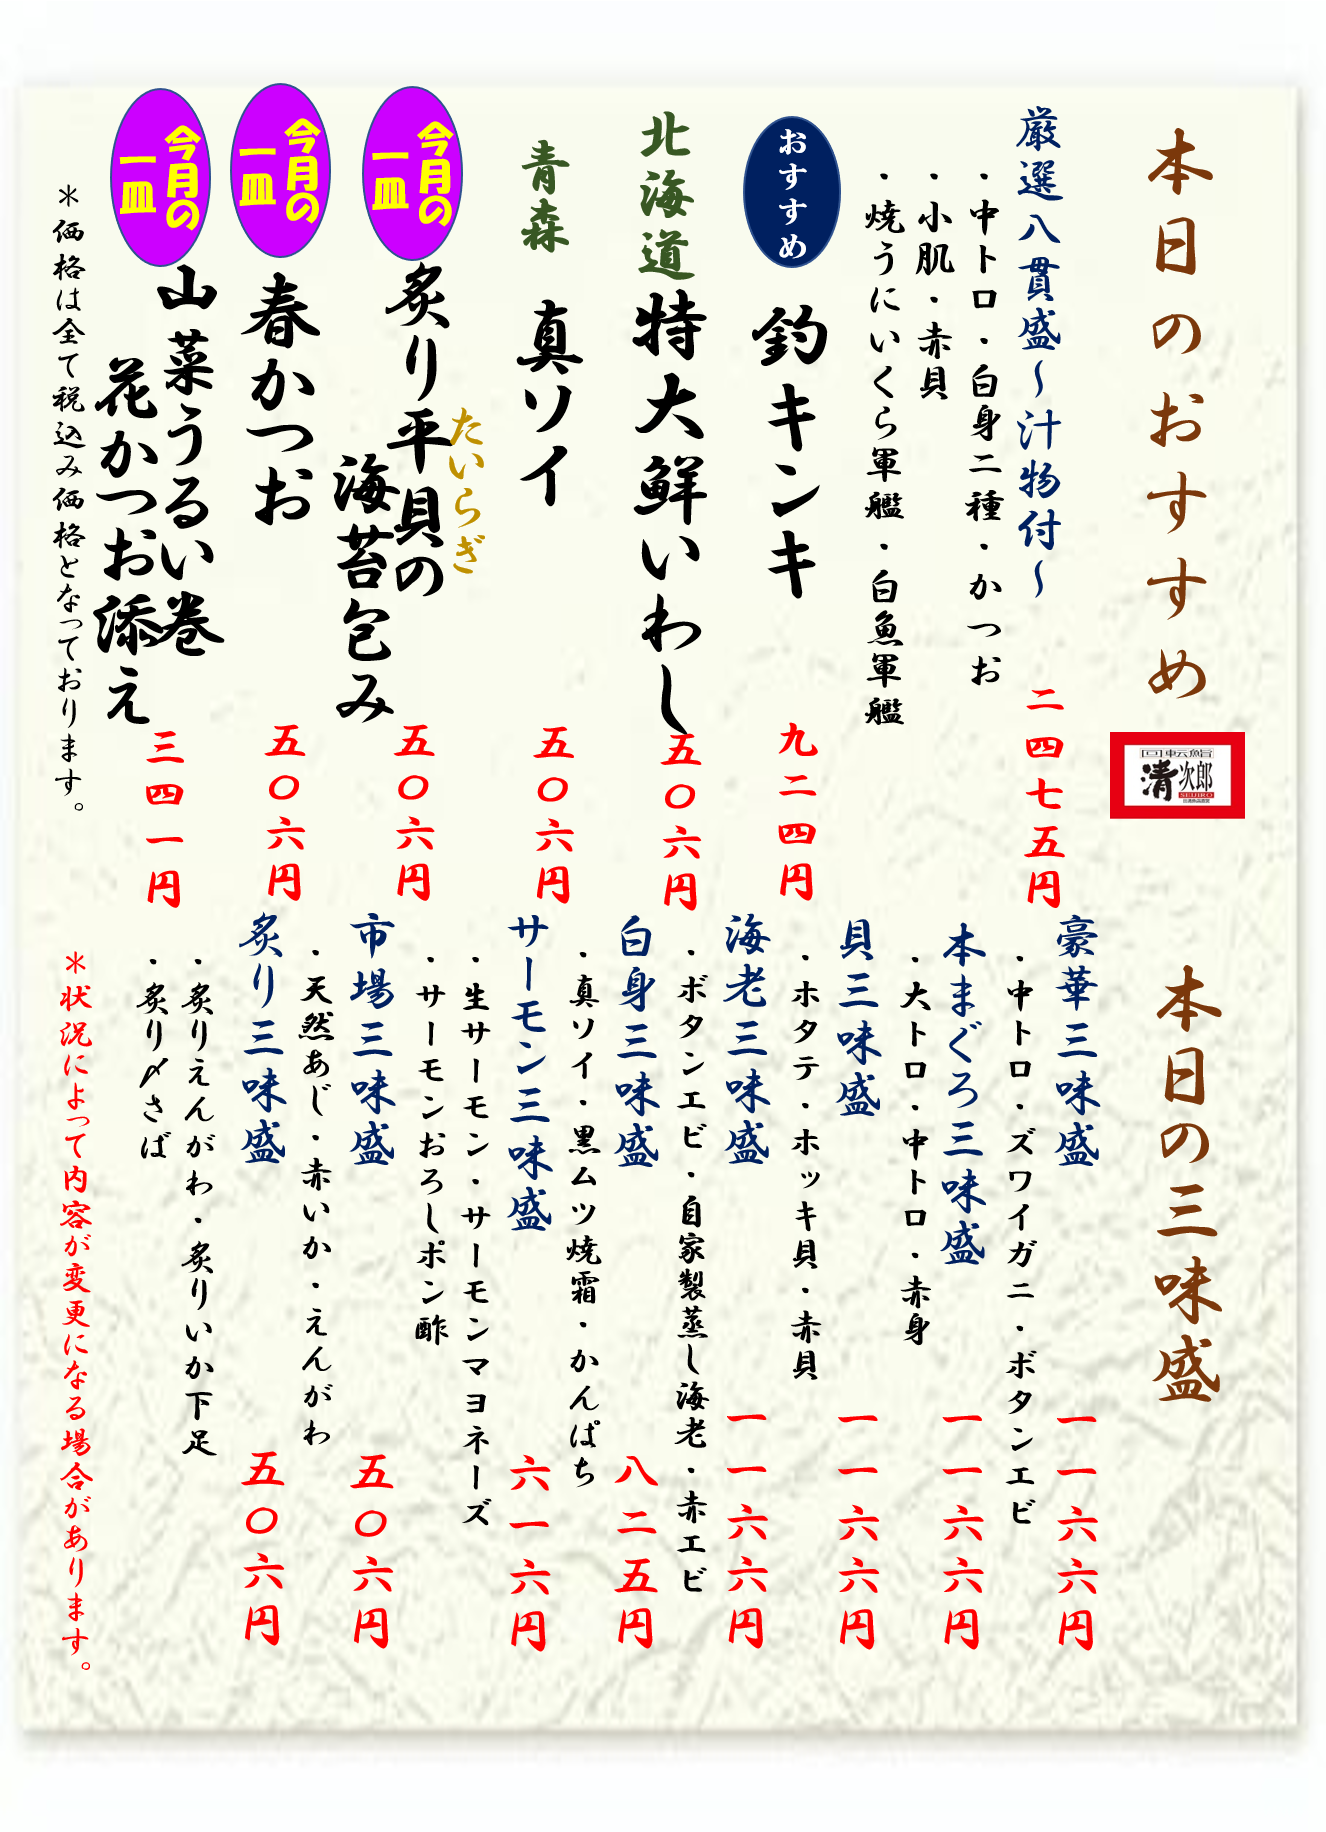 本日のおすすめ
回転鮨
清次郎
SEIJIRO
厳選八貫盛～汁物付～
二四七五円
・中トロ・白身二種・かつお
・小肌・赤貝
・焼うにいくら軍艦・白魚軍艦
おすすめ
釣キンキ
九二四円
北海道
特大鮮いわし
五〇六円
青森
真ソイ
五〇六円
今月の
一皿
たいらぎ
炙り平貝の
海苔包み
五〇六円
今月の
一皿
春かつお
五〇六円
今月の
一皿
山菜うるい巻
花かつお添え
三四一円
＊価格は全て税込み価格となっております。
本日の三味盛
豪華三味盛
一一六六円
・中トロ・ズワイガニ・ボタンエビ
本まぐろ三味盛
一一六六円
・大トロ・中トロ・赤身
貝三味盛
一一六六円
・ホタテ・ホッキ貝・赤貝
海老三味盛
一一六六円
・ボタンエビ・自家製蒸し海老・赤エビ
白身三味盛
八二五円
・真ソイ・黒ムツ焼霜・かんぱち
サーモン三味盛
六一六円
・生サーモン・サーモンマヨネーズ
・サーモンおろしポン酢
市場三味盛
五〇六円
・天然あじ・赤いか・えんがわ
炙り三味盛
五〇六円
・炙りえんがわ・炙りいか下足
・炙り〆さば
＊状況によって内容が変更になる場合があります。